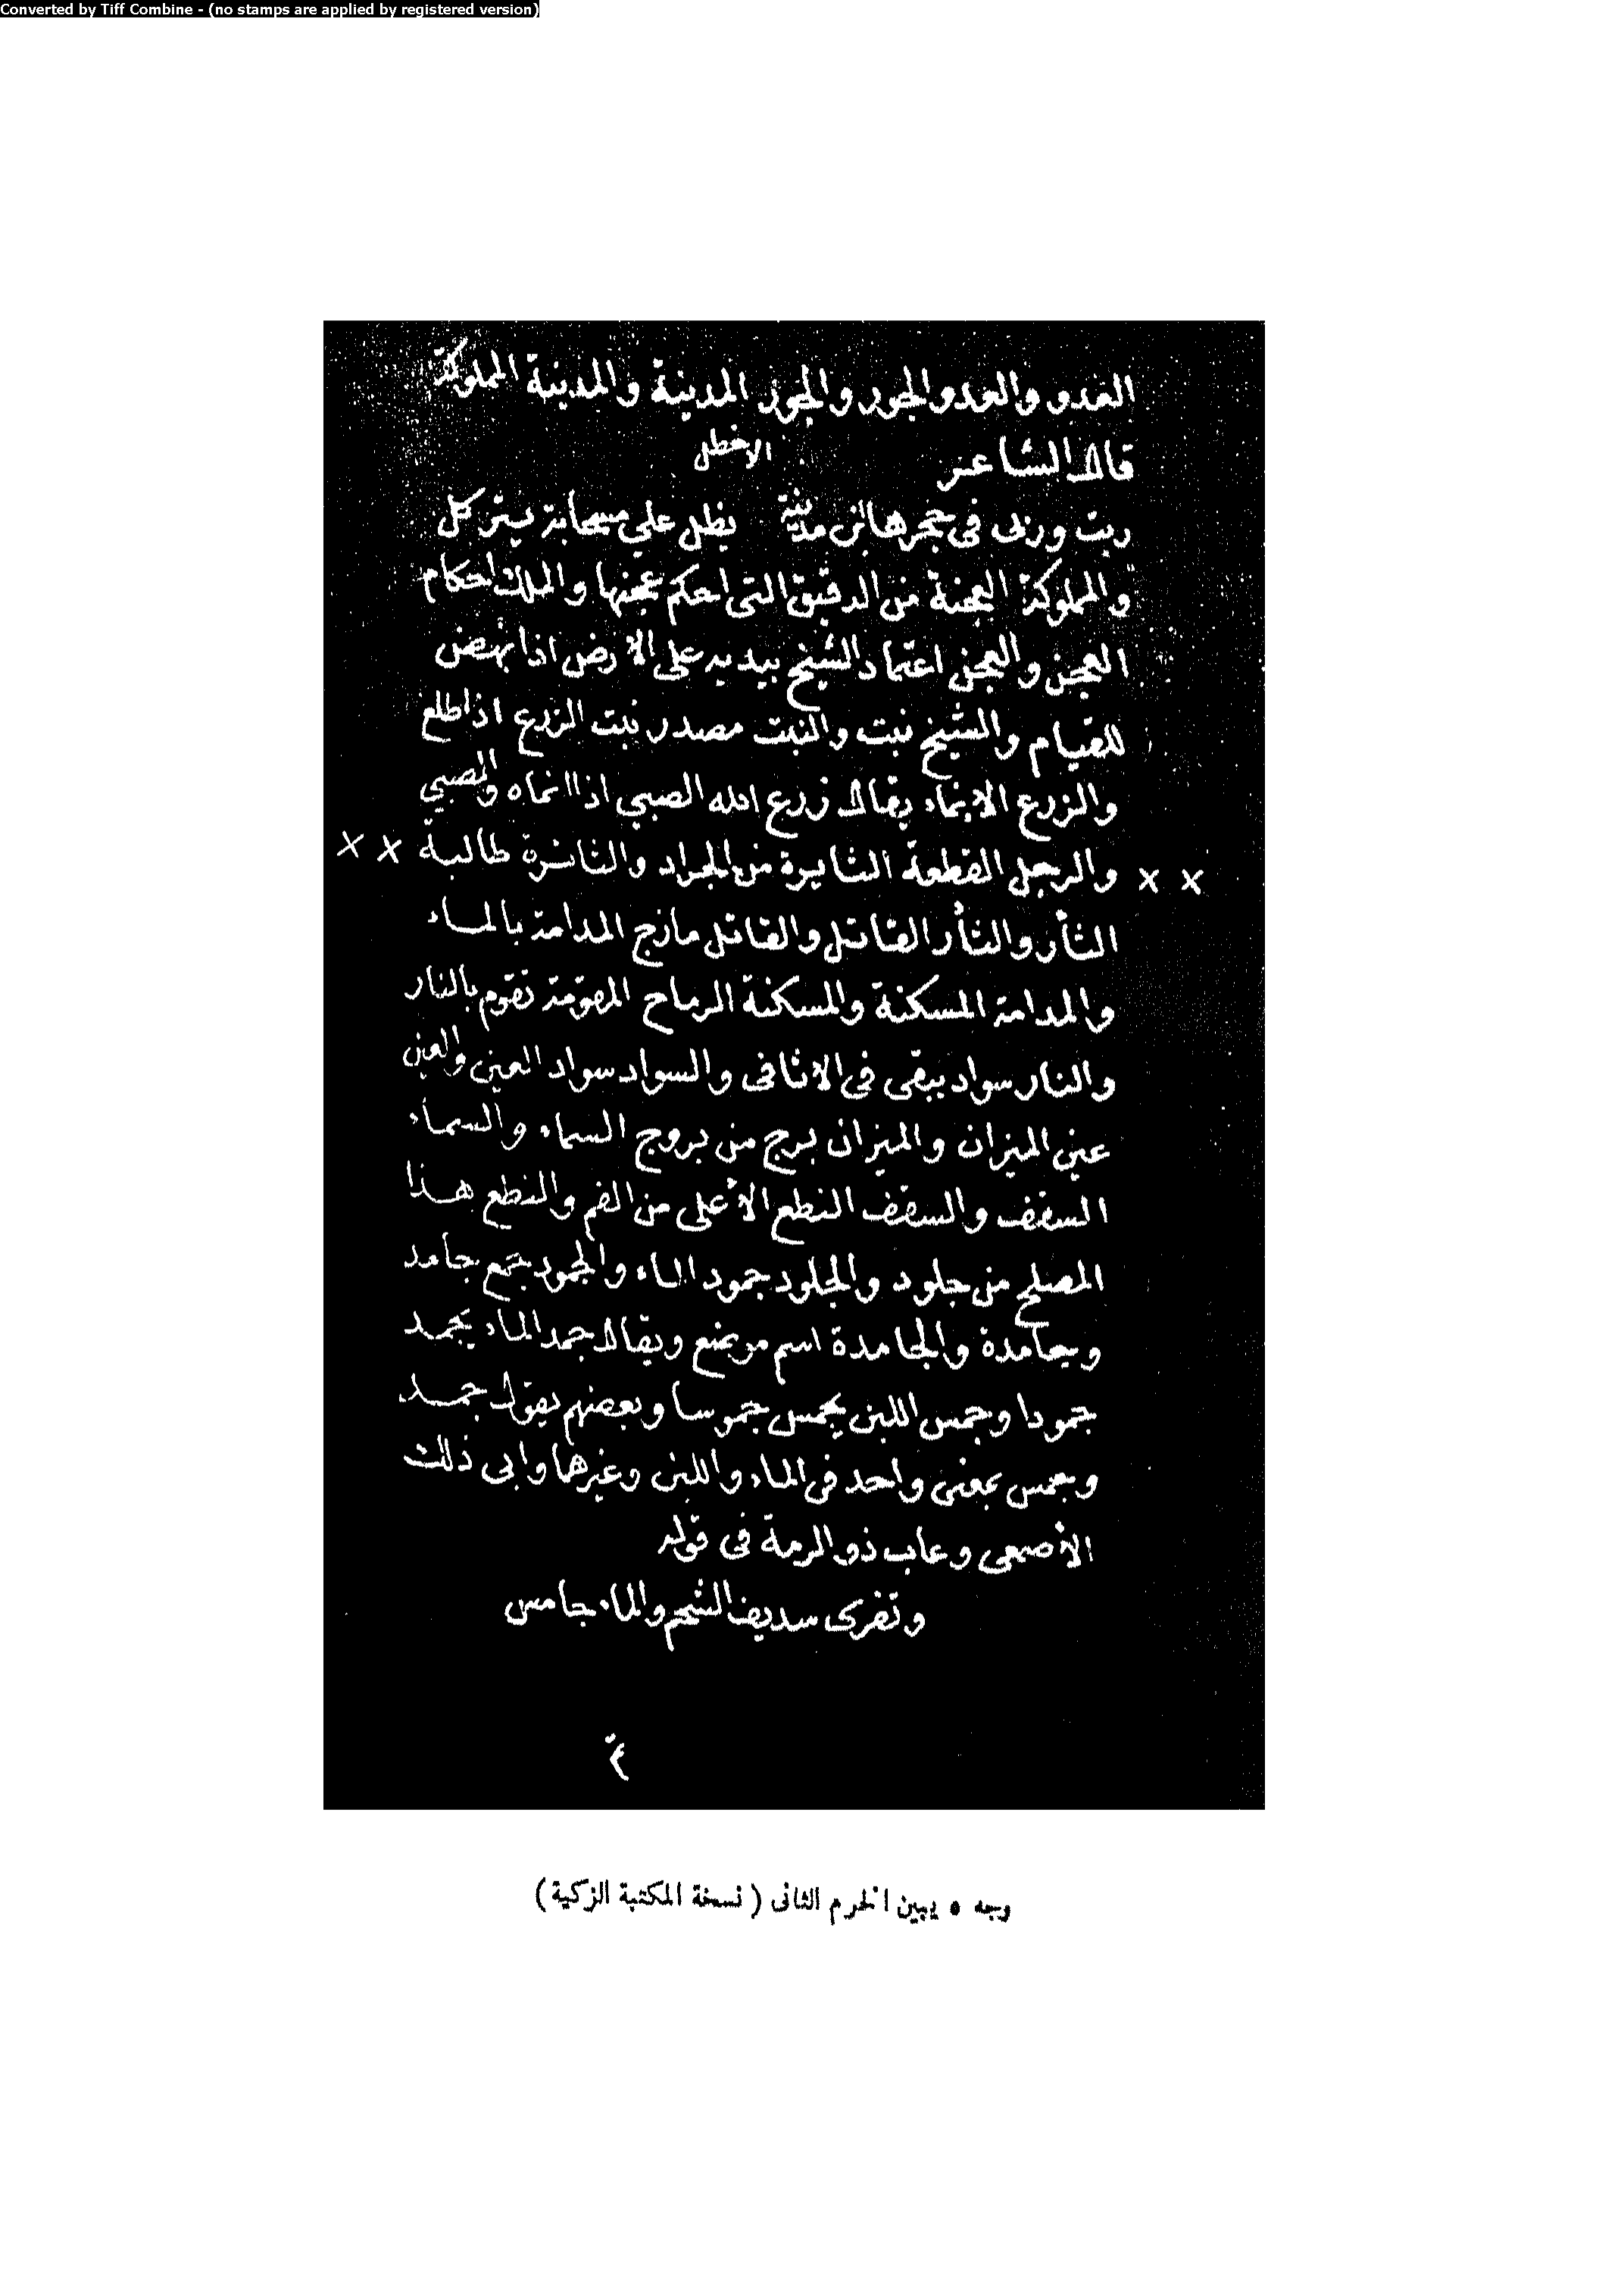 Converted by Tiff Combine - (no stamps are applied by registered version)
العدو والعدو الجور والجور المدينة والمدينة المملوكة
قال الشاعر الاخطل
ربت وربى فى حجرها ابن مدينة يظل على مسحاته يتركل
والمملوكة العجنة من الدقيق التى احكم عجنها والملك احكام
العجن والعجن اعتماد الشيخ بيديه على الارض اذا نهض
للقيام والشيخ نبت والنبت مصدر نبت الزرع اذا طلع
والزرع الانماء يقال زرع الله الصبي اذا انماه والصبي
x x والرجل القطعة الثايرة من الجراد والثائرة طالبة x x
الثأر والثأر القاتل والقاتل مازج المدامة بالماء
والمدامة المسكنة والمسكنة الرماح المقومة تقوم بالنار
والنار سواد يبقى فى الاثافى والسواد سواد العين والعين
عين الميزان والميزان برج من بروج السماء والسماء
السقف والسقف النطع الأعلى من الفم والنطع هذا
المصلح من جلود والجلود جمود الماء والجمود جمع جامد
وجامدة والجامدة اسم موضع ويقال جمد الماء يجمد
جمودا وجمس اللبن يجمس جموسا وبعضهم يقول جمد
وجمس بمعنى واحد فى الماء واللبن وغيرها وابى ذلك
الأصمعى وعاب ذو الرمة فى قوله
وتفرى سديف الشحم والماء جامس
٤
وجه ٥ يبين الخرم الثانى ( نسخة المكتبة الزكية )